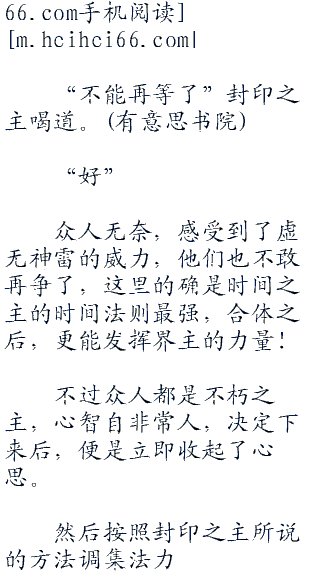 66.com手机阅读]
[m.hcihci66.com]
“不能再等了”封印之
主喝道。(有意思书院)
“好”
众人无奈，感受到了虚
无神雷的威力，他们也不敢
再争了，这里的确是时间之
主的时间法则最强，合体之
后，更能发挥界主的力量！
不过众人都是不朽之
主，心智自非常人，决定下
来后，便是立即收起了心
思。
然后按照封印之主所说
的方法调集法力